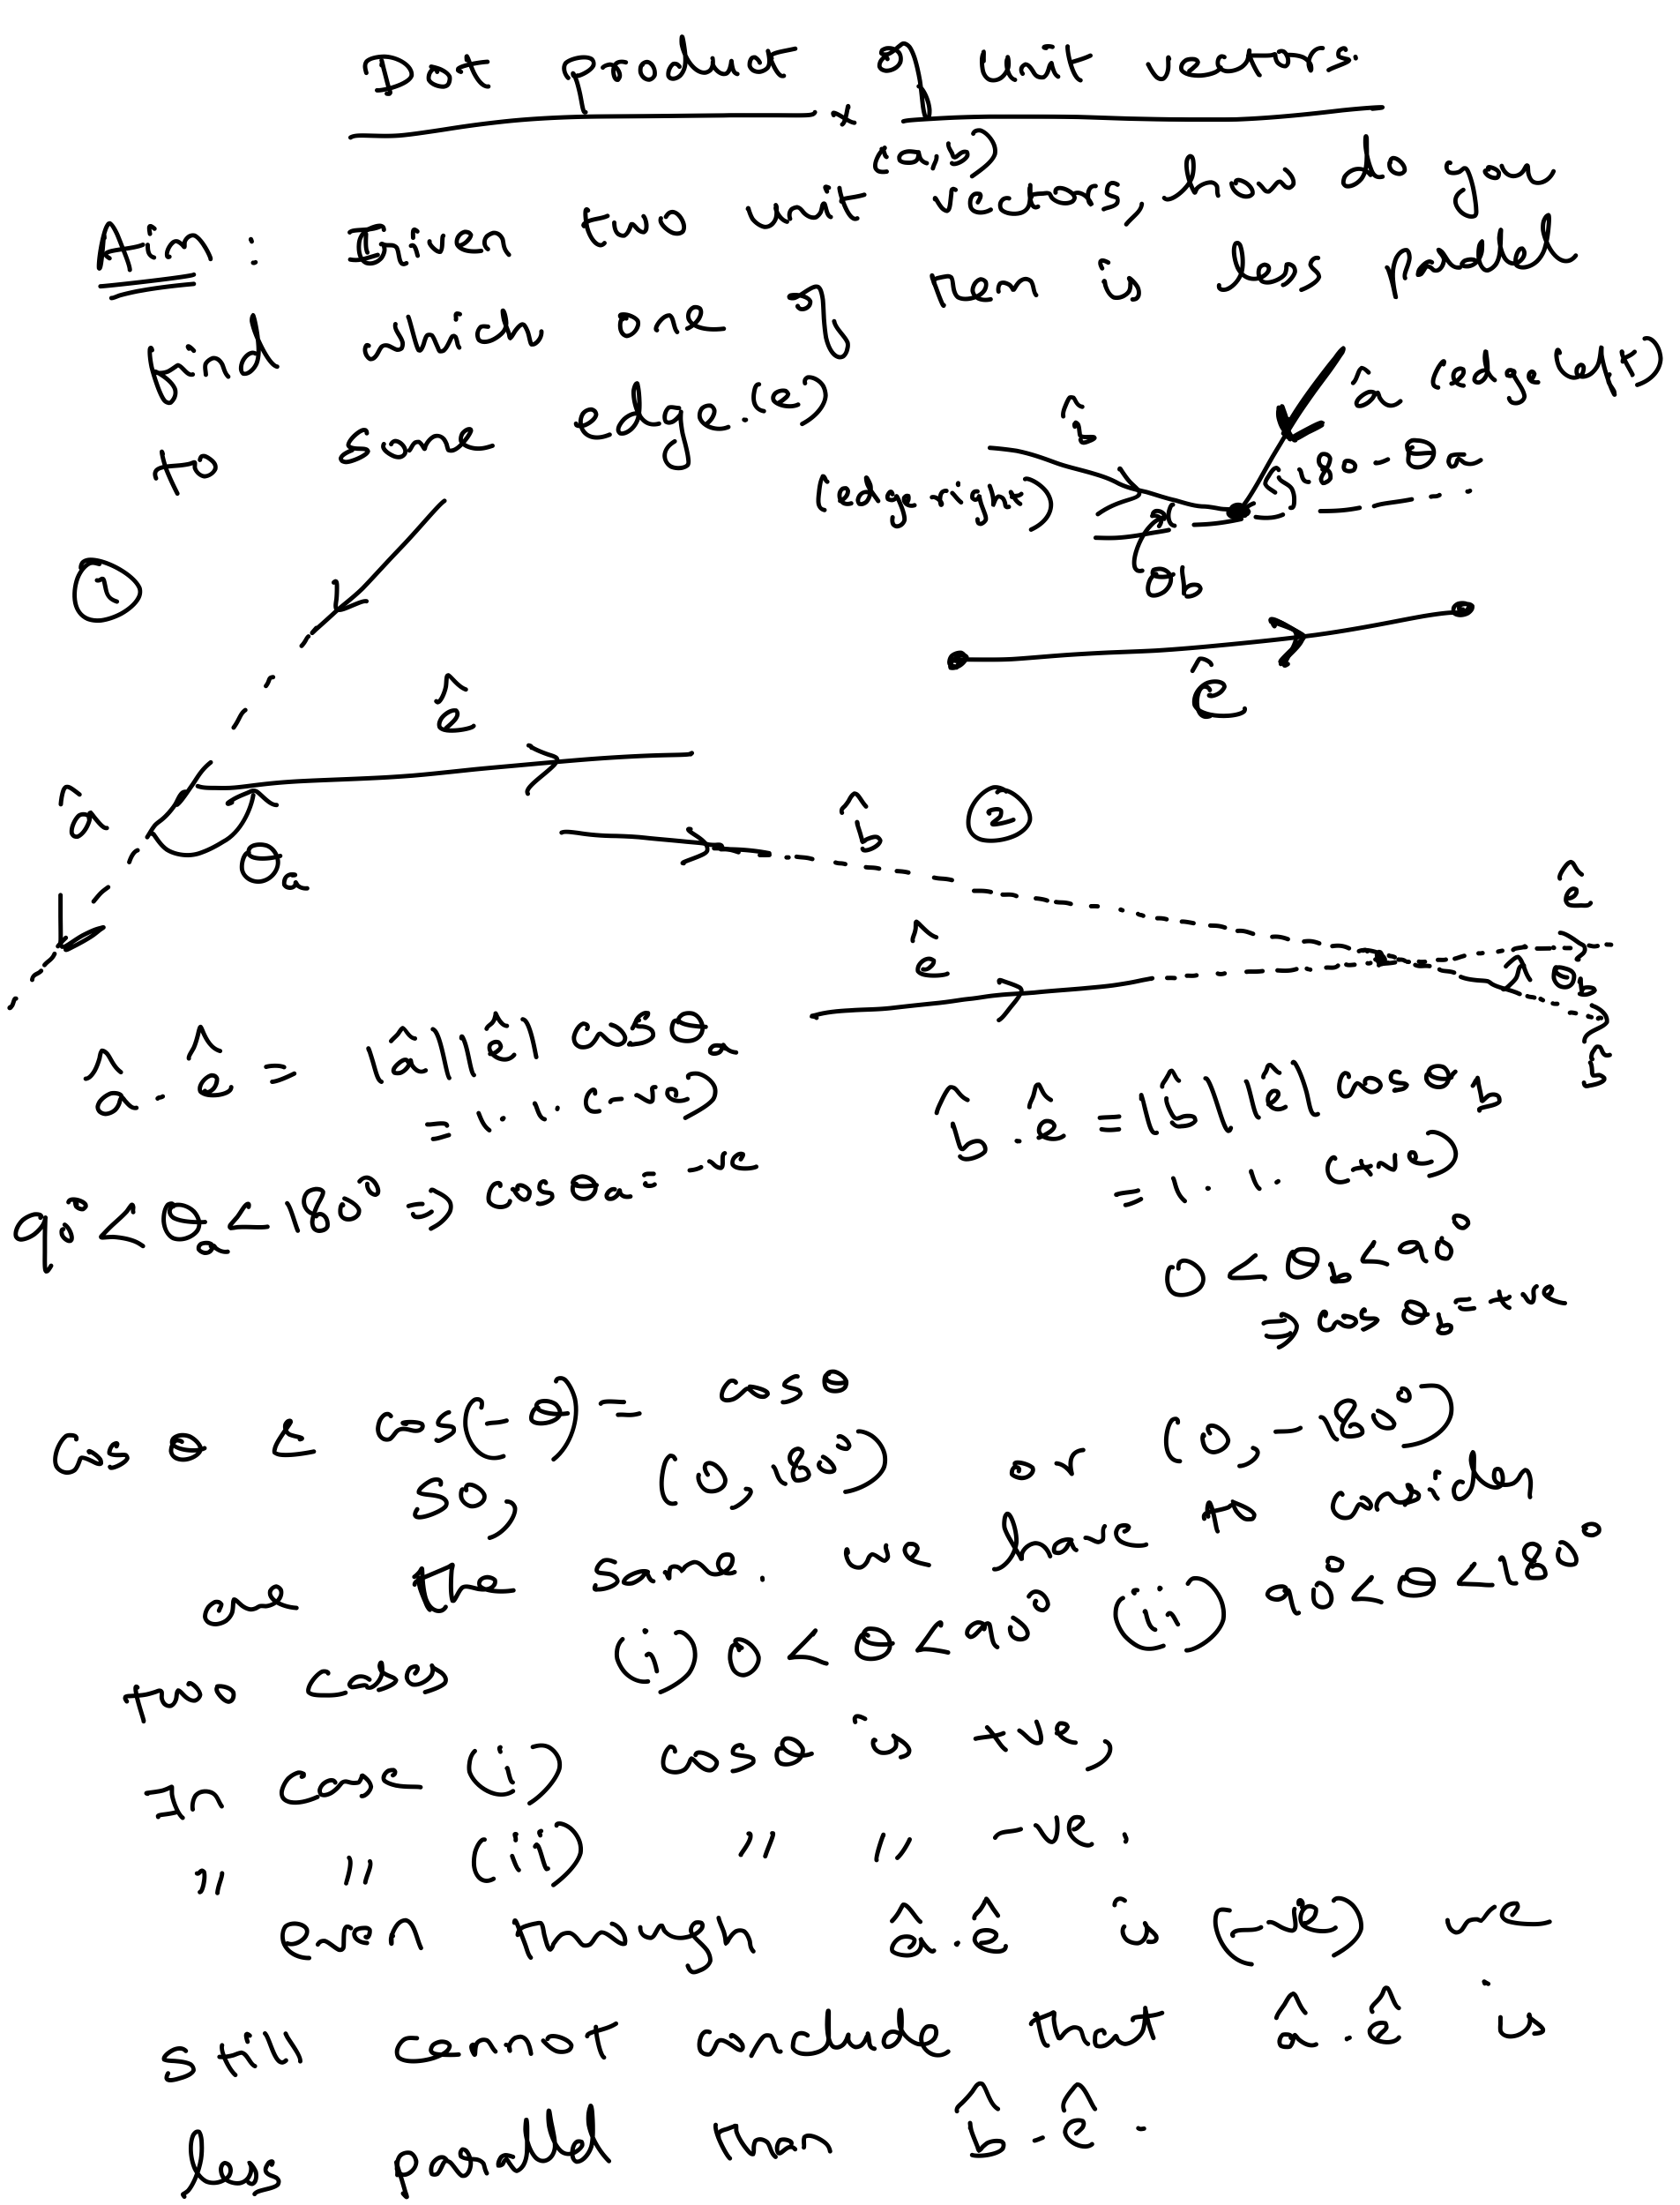 Dot product of unit vectors.
Aim: Given two unit vectors, (a,b) how do you
find which one of them is less parallel
to some edge. (e)
â (edge left)
b̂
(edge right)
180 - θa
θb
ê
①
ê
â
θa
②
b̂
ê
ê
θb
b̂
â . ê = |â||ê| cos θa
= 1 . 1 . (-ve)
90° < θa < 180° ⇒ cos θa = -ve
b̂ . ê = |b̂||ê| cos θb
= 1 . 1 . (+ve)
0 < θb < 90°
⇒ cos θb = +ve
Cos θ & cos(-θ) = cos θ
so, (0, 180°) or (0, -180°)
are the same. we have to consider
two cases (i) 0 < θ < 90° (ii) 90° < θ < 180°
In case (i) cos θ is +ve,
" " (ii) " " -ve.
even though â . ê is (-ve) we
still cannot conclude that â . ê is
less parallel than b̂ . ê .